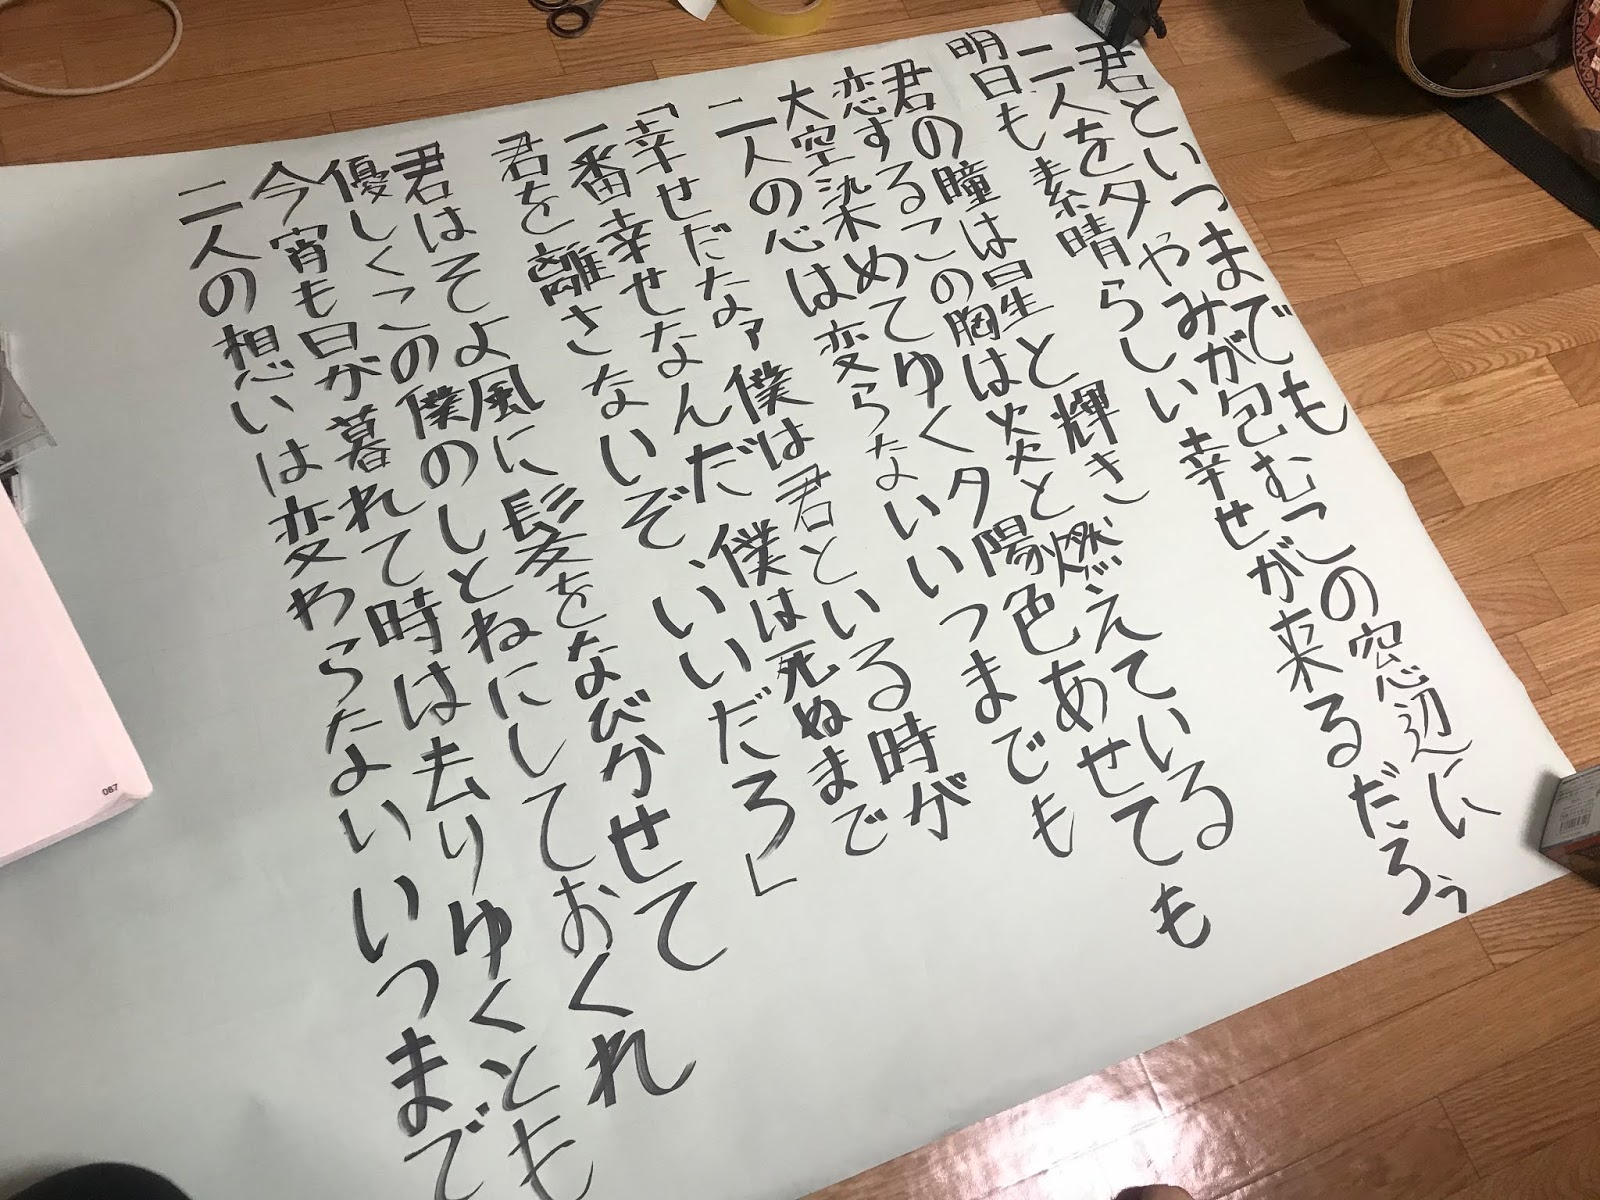 君といつまでも
二人を夕やみが包むこの窓辺に
明日も素晴らしい幸せが来るだろう
君の瞳は星と輝き
恋するこの胸は炎と燃えている
大空染めてゆく夕陽色あせても
二人の心は変らないいつまでも
「幸せだなァ僕は君といる時が
一番幸せなんだ 僕は死ぬまで
君を離さないぞ、いいだろ」
君はそよ風に髪をなびかせて
優しくこの僕のしとねにしておくれ
今宵も日が暮れて時は去りゆくとも
二人の想いは変わらないいつまで
087